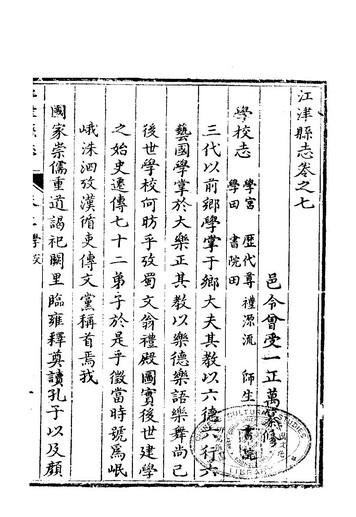 江津縣志卷之七
邑令曾受一正萬纂修
學校志 學宮 歷代尊禮源流 師生 書院
學田 書院田
三代以前鄉學掌于鄉大夫其教以六德六行六
藝國學掌於大樂正其教以樂德樂語樂舞尚已
後世學校何昉乎攷蜀文翁禮殿圖實後世建學
之始史遷傳七十二弟子於是乎徵當時號為岷
峨洙泗攷漢循吏傳文黨稱首焉我
國家崇儒重道謁祀闕里臨雍釋奠讀孔子以及顏
學校